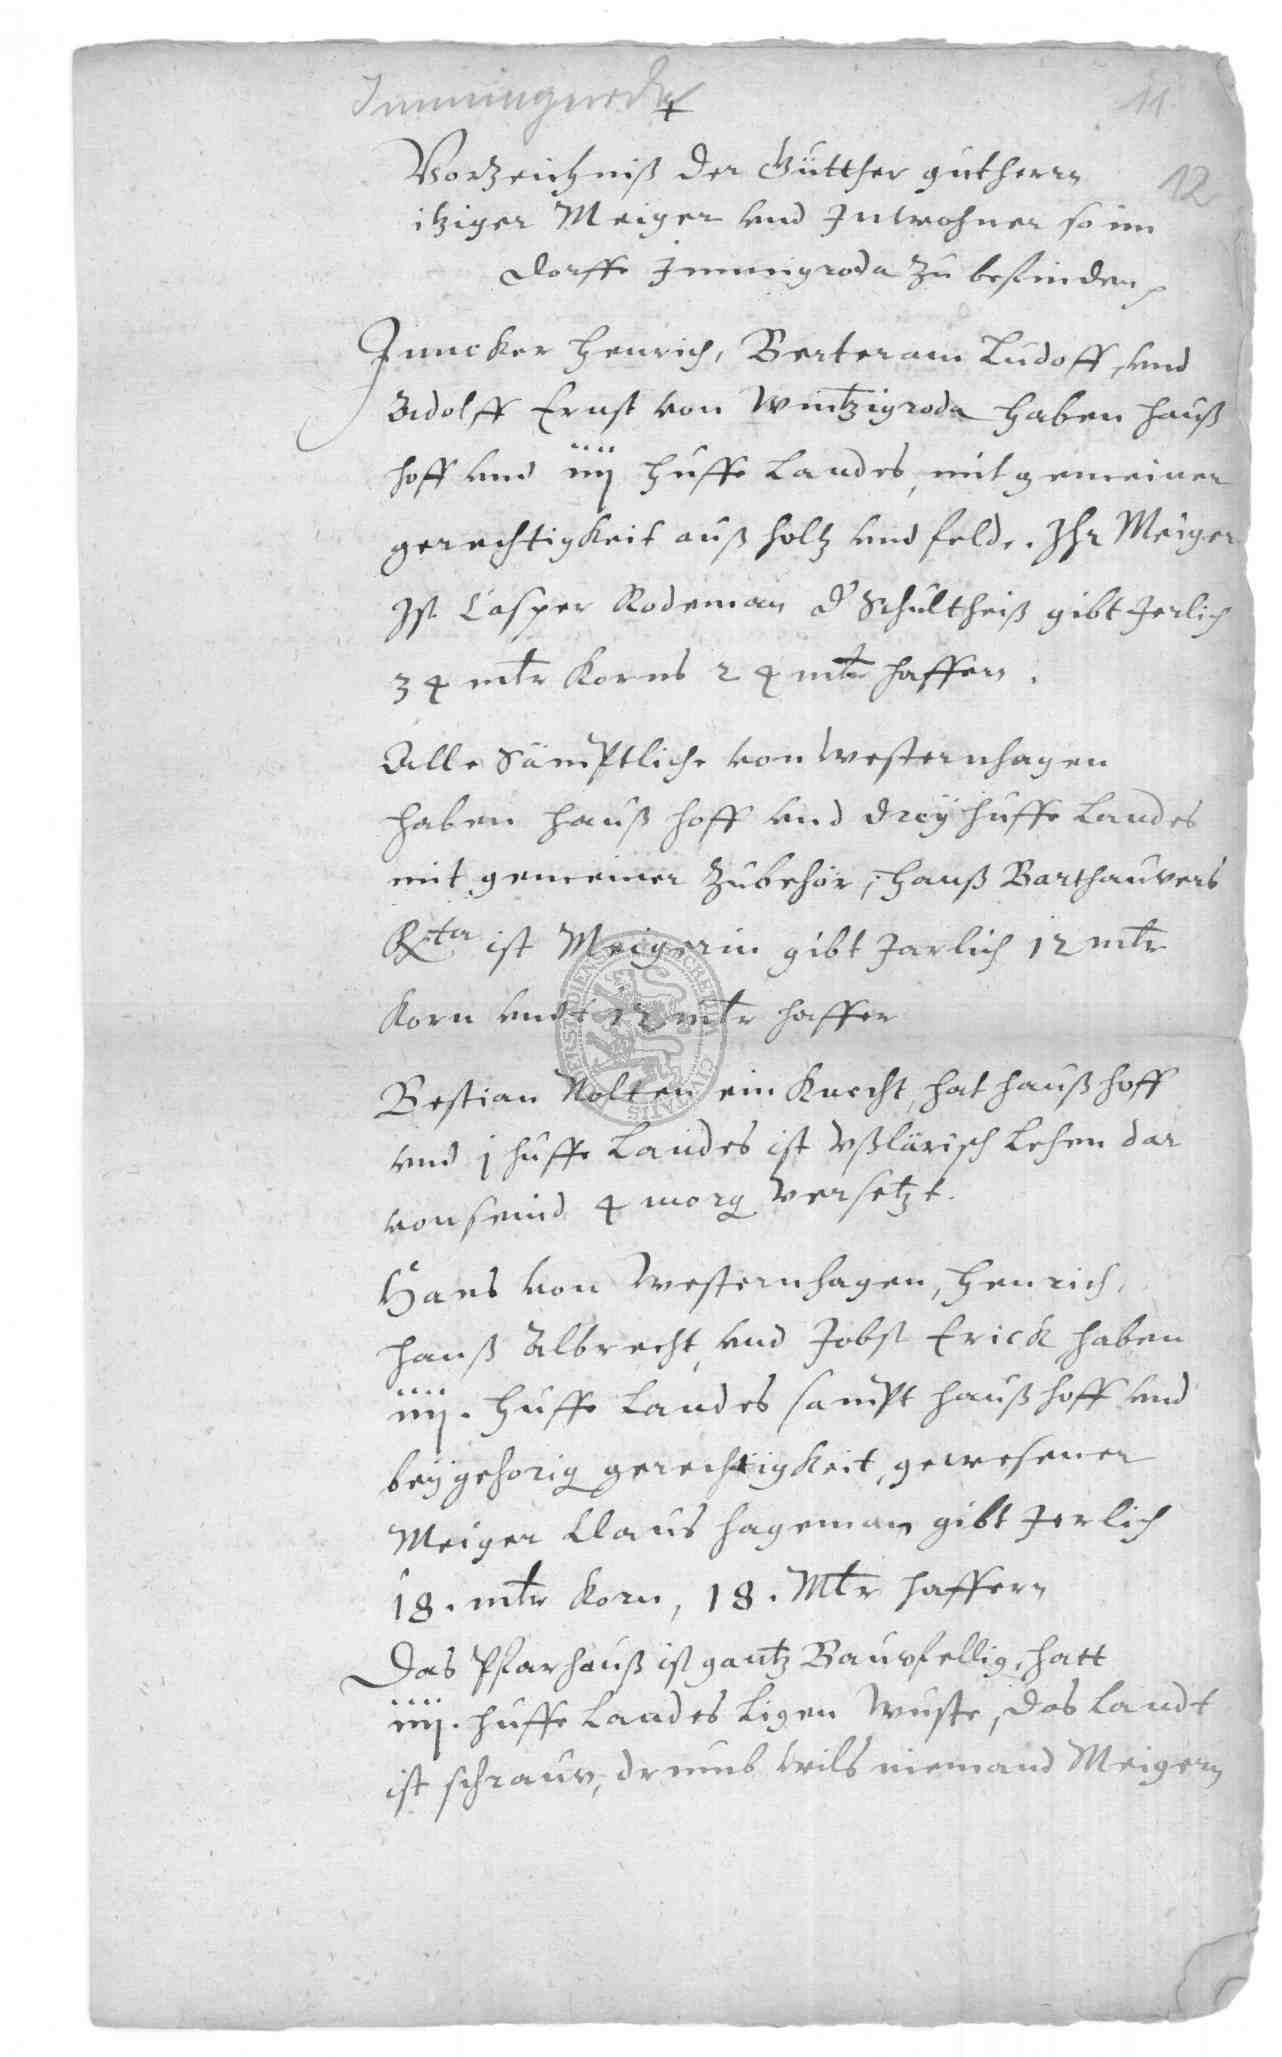 Immingeroda
11
12
Vorzeichniß der Gütther gutherrn
itziger Meiger vnd Inwohner so im
dorffe Immigroda zu befinden
Juncker Henrich, Berteram Ludoff, vnd
Adolff Ernst von Wintzigroda haben hauß
hoff vnd iiij huffe Landes, mit gemeiner
gerechtigkeit auß holtz vnd felde. Ihr Meiger
Ist Casper Rodeman d' Schultheiß gibt Jerlich
34 mtr Korns 24 mtr haffern.
Alle Sämptliche von Westernhagen
haben hauß hoff vnd dreÿ huffe Landes
mit gemeiner Zubehör, Hanß Barthauwers
Rcta ist Meigerin gibt Jarlich 12 mtr
Korn vndt 12 mtr haffer
Bestian Nolten ein Knecht, hat hauß hoff
vnd j huffe Landes ist Vßlärisch Lehen dar
von seind 4 morg versetzt.
Hans von Westernhagen, Henrich,
Hanß Albrecht, vnd Jobst Erick haben
iiij. Huffe Landes sampt hauß hoff vnd
beÿgehorig gerechtigkeit, gewesener
Meiger Claus Hageman gibt Jerlich
18. mtr Korn, 18. Mtr haffern
Das Pfarhauß ist gantz Bauwfellig, hatt
iiij. huffe Landes Ligen Wuste, das Landt
ist schrauw, drumb wils niemand Meigern